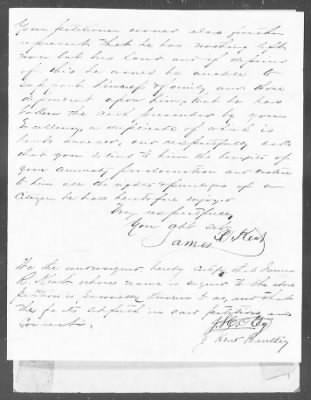 Your petitioner would also further
represent that he has nothing left
now but his land and if deprived
of this he would be unable to
support himself & family, and those
dependent upon him, that he has
taken the oath presented by your
Excellency, a duplicate of which is
hereto annexed, and respectfully asks
that you extend to him the benefits of
your amnesty proclamation and restore
to him all the rights & privileges of a
citizen he has heretofore enjoyed
Very respectfully
Your obt svt
James R Kent
We the undersigned hereby certify that James
R. Kent whose name is signed to the above
petition is personally known to us, and that
the facts set forth in said petition are
correct.
J. Kent